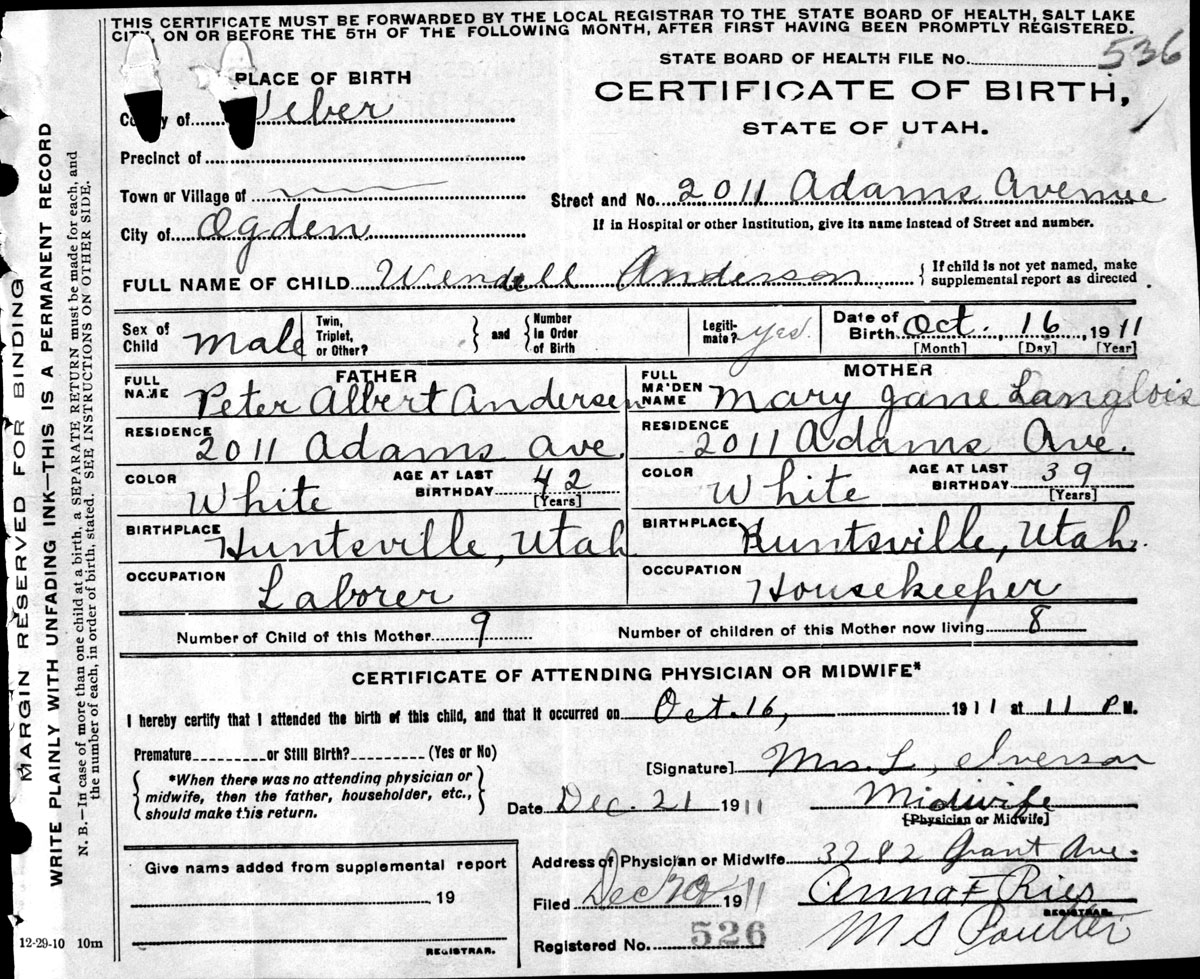 THIS CERTIFICATE MUST BE FORWARDED BY THE LOCAL REGISTRAR TO THE STATE BOARD OF HEALTH, SALT LAKE
CITY, ON OR BEFORE THE 5TH OF THE FOLLOWING MONTH, AFTER FIRST HAVING BEEN PROMPTLY REGISTERED.
STATE BOARD OF HEALTH FILE No. 536
PLACE OF BIRTH
CERTIFICATE OF BIRTH,
STATE OF UTAH.
County of Weber
Precinct of
Town or Village of
Street and No. 2011 Adams Avenue
City of Ogden
If in Hospital or other Institution, give its name instead of Street and number.
FULL NAME OF CHILD Wendell Anderson
If child is not yet named, make
supplemental report as directed
Sex of Child Male
Twin, Triplet, or Other?
and
Number in Order of Birth
Legiti-mate? yes
Date of Birth Oct. 16, 1911
[Month] [Day] [Year]
FATHER
FULL NAME Peter Albert Andersen
RESIDENCE 2011 Adams Ave.
COLOR White
AGE AT LAST BIRTHDAY 42
[Years]
BIRTHPLACE Huntsville, Utah
OCCUPATION Laborer
MOTHER
FULL MAIDEN NAME Mary Jane Langlois
RESIDENCE 2011 Adams Ave.
COLOR White
AGE AT LAST BIRTHDAY 39
[Years]
BIRTHPLACE Huntsville, Utah.
OCCUPATION Housekeeper
Number of Child of this Mother 9
Number of children of this Mother now living 8
CERTIFICATE OF ATTENDING PHYSICIAN OR MIDWIFE*
I hereby certify that I attended the birth of this child, and that it occurred on Oct. 16, 1911 at 11 P M.
Premature or Still Birth? (Yes or No)
*When there was no attending physician or
midwife, then the father, householder, etc.,
should make this return.
[Signature] Mrs. L. Iverson
Date Dec. 21 1911
Midwife
[Physician or Midwife]
Give name added from supplemental report
19
REGISTRAR.
Address of Physician or Midwife 3282 Grant Ave.
Filed Dec 1911
Anna F Ries
REGISTRAR.
Registered No. 526
M S
12-29-10 10m
MARGIN RESERVED FOR BINDING
WRITE PLAINLY WITH UNFADING INK—THIS IS A PERMANENT RECORD
N. B.—In case of more than one child at a birth, a SEPARATE RETURN must be made for each, and
the number of each, in order of birth, stated. SEE INSTRUCTIONS ON OTHER SIDE.